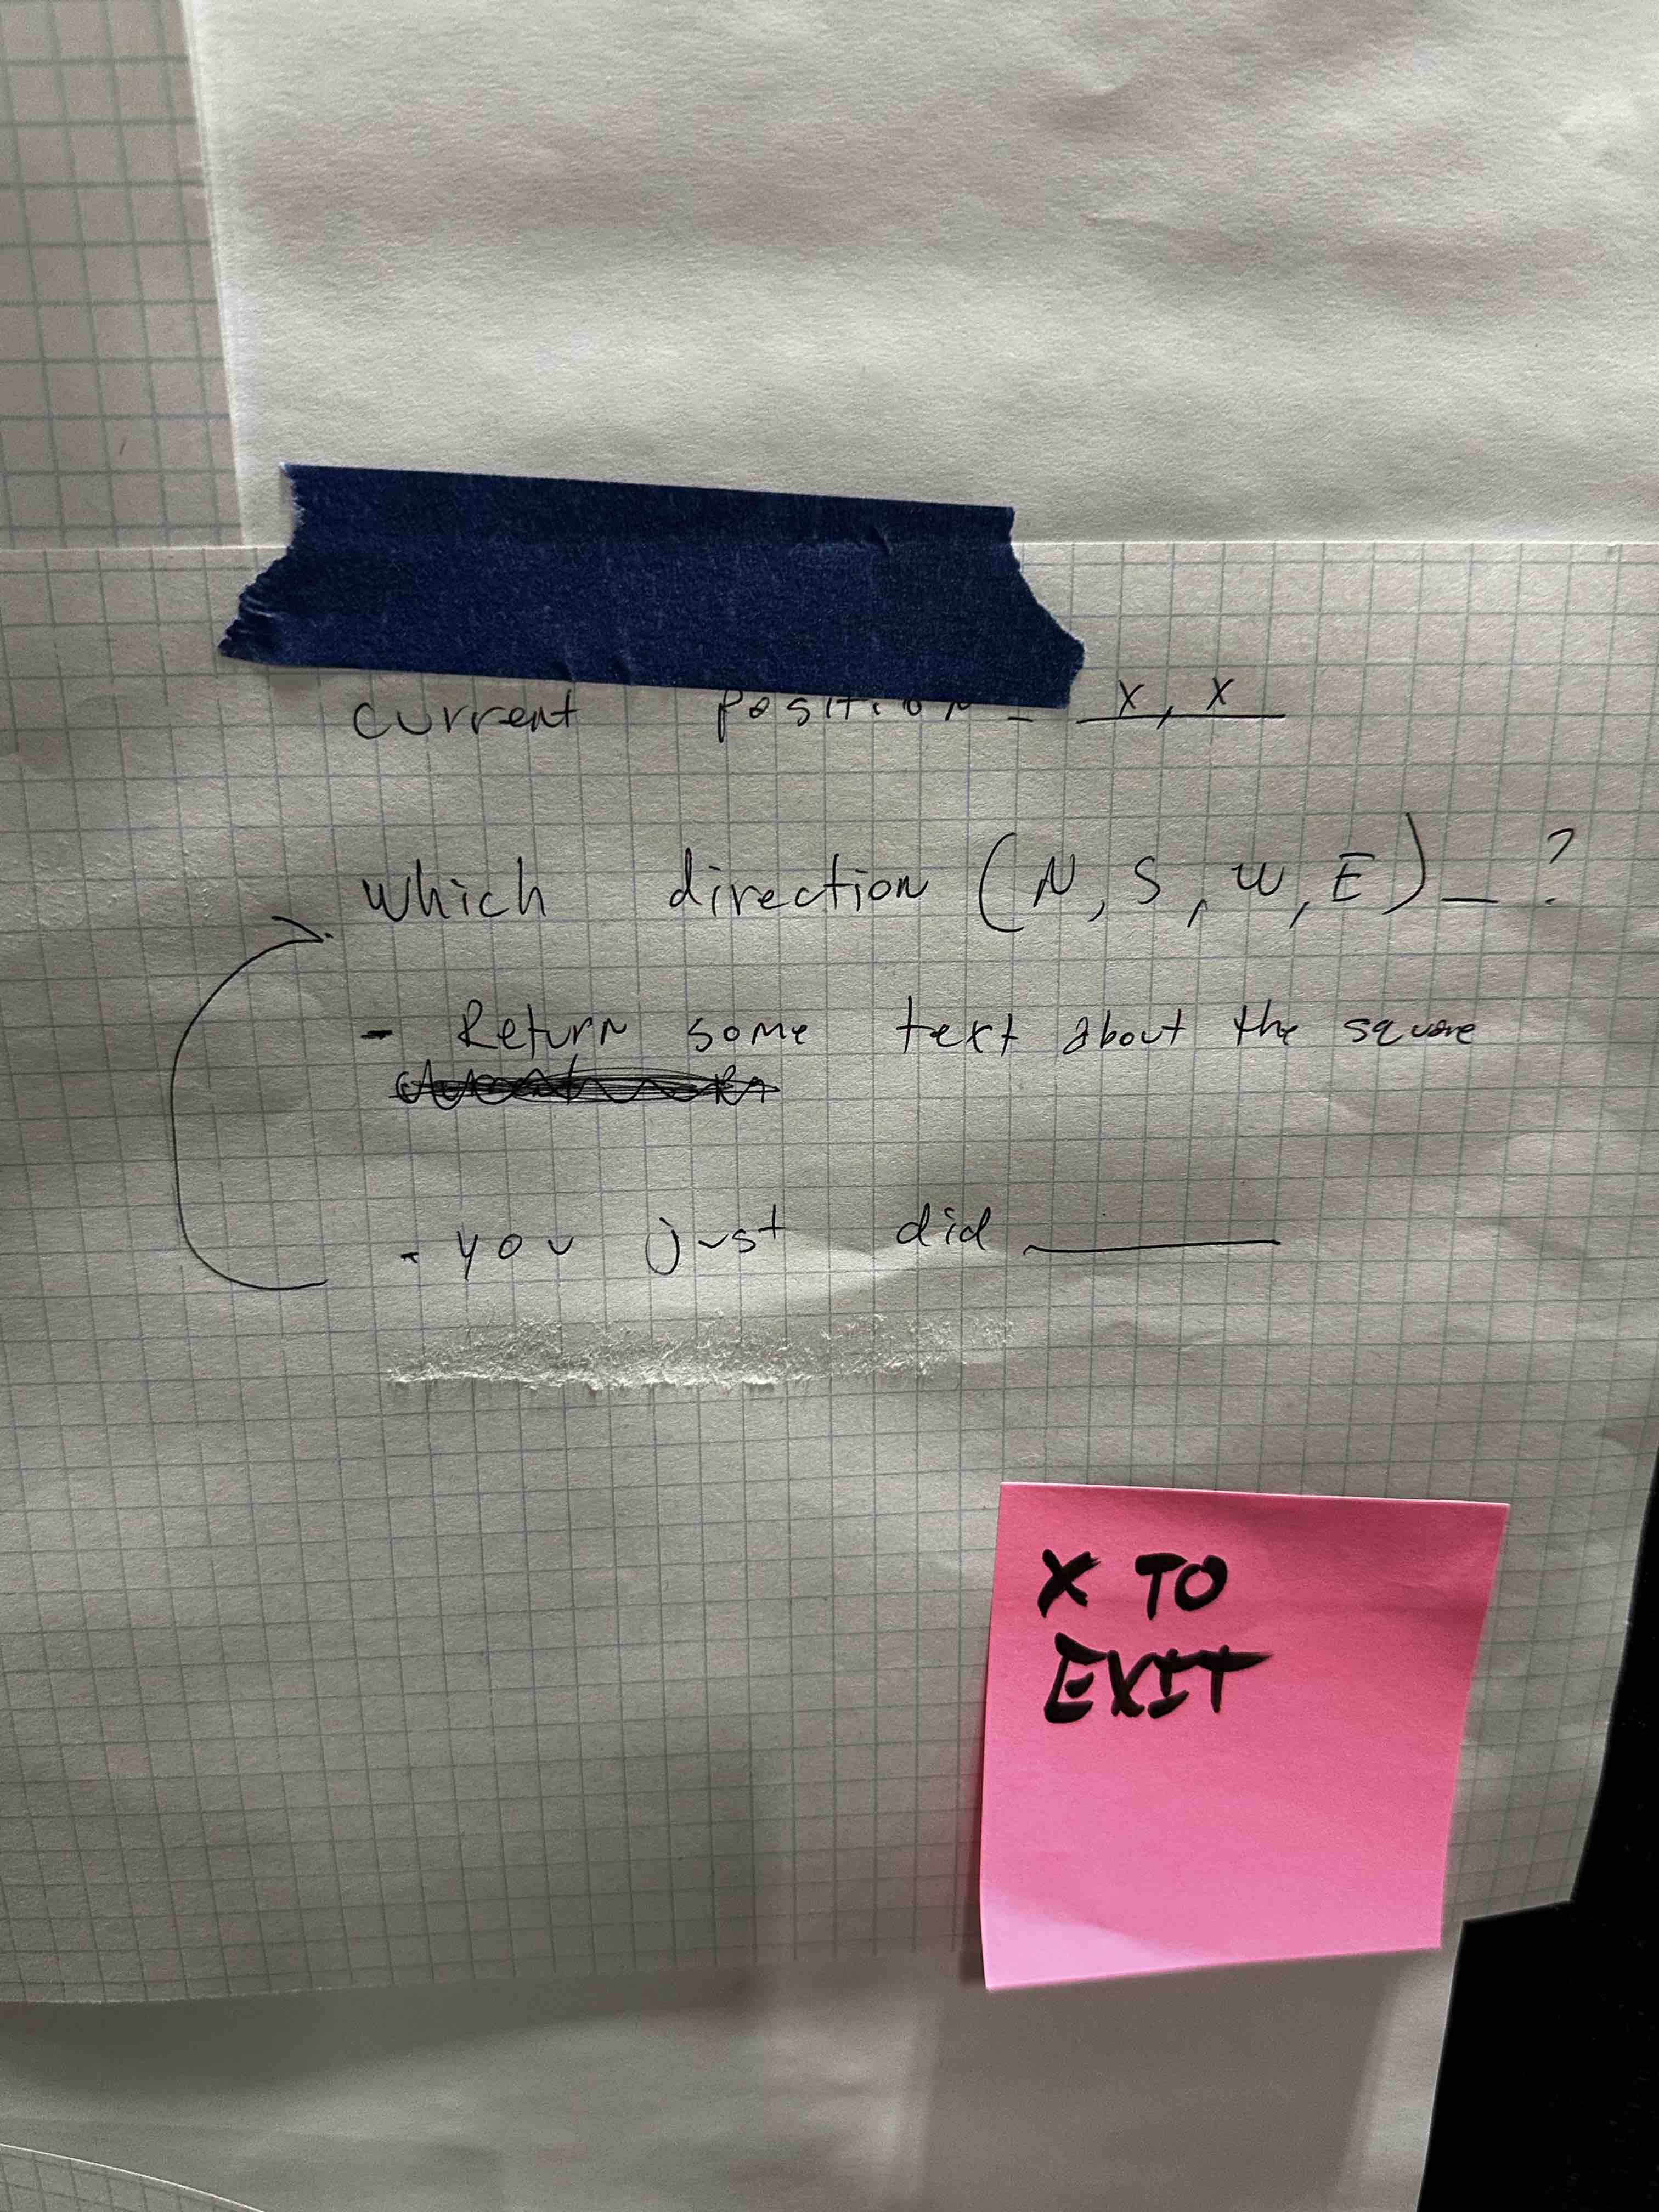 current position - x, x
which direction (N, S, W, E) _ ?
- Return some text about the square
- you just did ______
X TO
EXIT